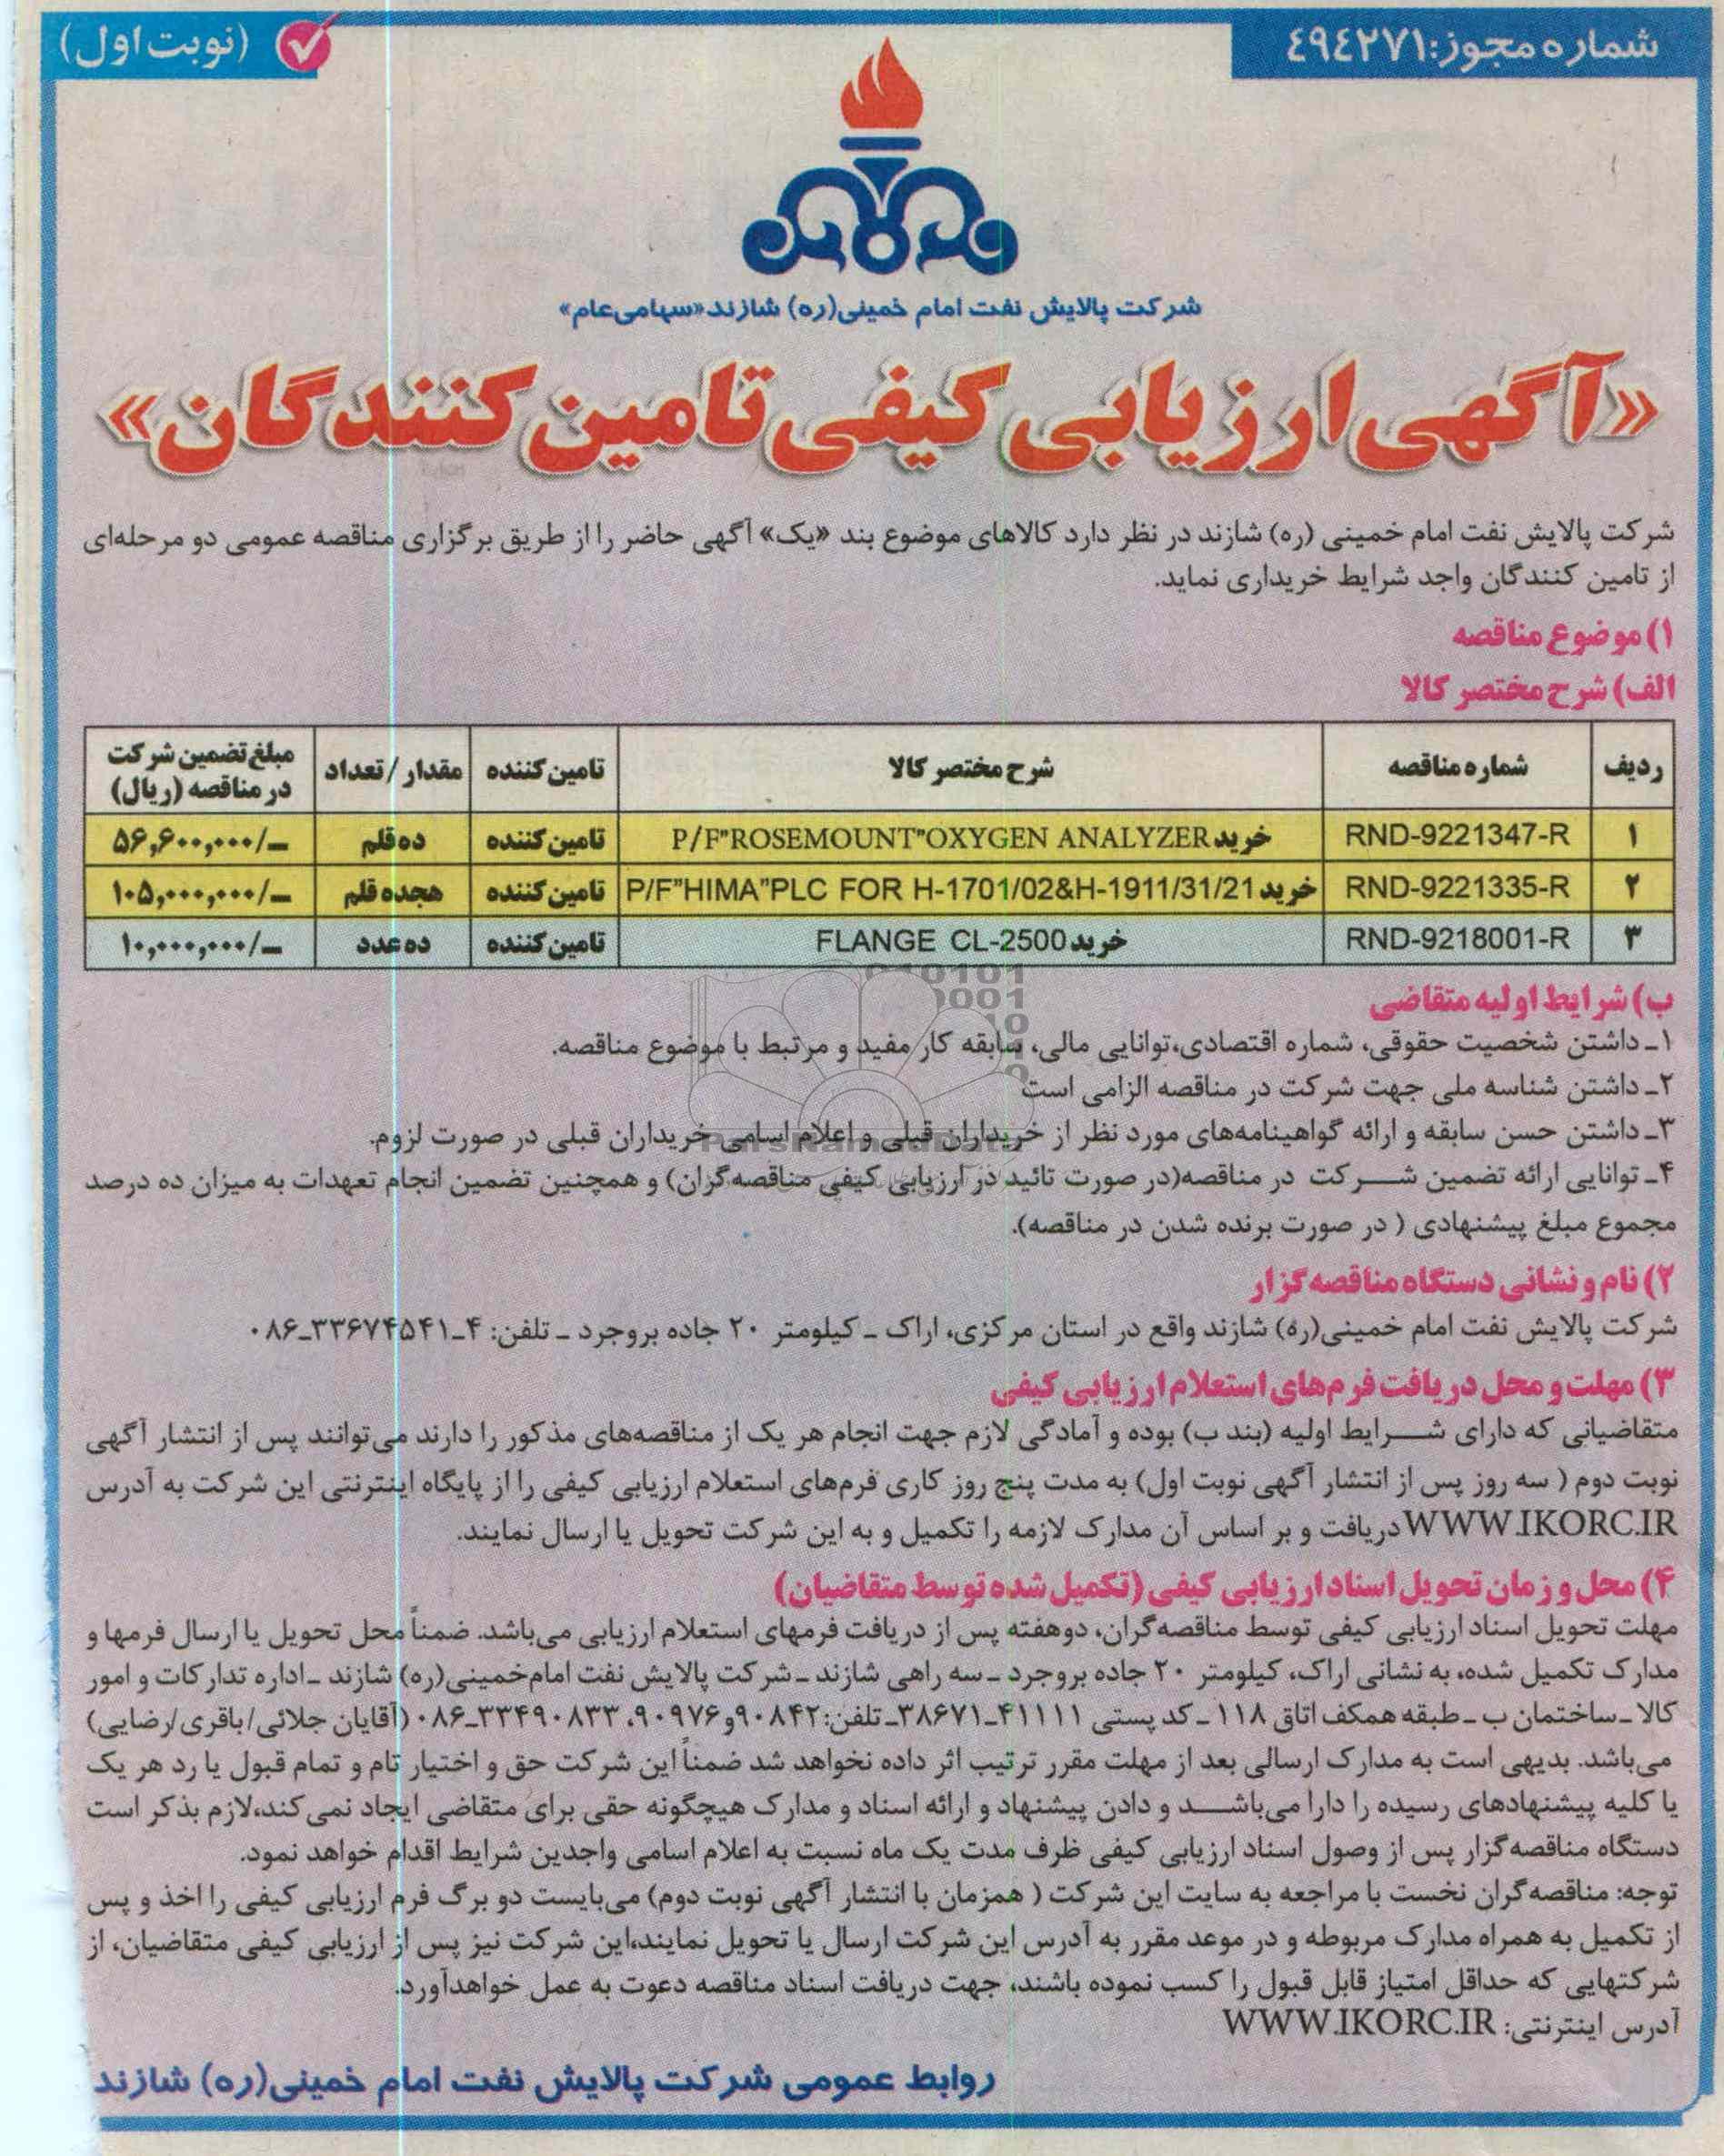 شماره مجوز: ۴۹۴۲۷۱
(نوبت اول)
شرکت پالایش نفت امام خمینی(ره) شازند«سهامی عام»
«آگهی ارزیابی کیفی تامین کنندگان»
شرکت پالایش نفت امام خمینی (ره) شازند در نظر دارد کالاهای موضوع بند «یک» آگهی حاضر را از طریق برگزاری مناقصه عمومی دو مرحله‌ای
از تامین کنندگان واجد شرایط خریداری نماید.
۱) موضوع مناقصه
الف) شرح مختصر کالا
ردیف شماره مناقصه شرح مختصر کالا تامین کننده مقدار / تعداد مبلغ تضمین شرکت در مناقصه (ریال)
۱ RND-9221347-R خرید P/F"ROSEMOUNT"OXYGEN ANALYZER تامین کننده ده قلم ۵۶,۶۰۰,۰۰۰/ـ
۲ RND-9221335-R خرید P/F"HIMA"PLC FOR H-1701/02&H-1911/31/21 تامین کننده هجده قلم ۱۰۵,۰۰۰,۰۰۰/ـ
۳ RND-9218001-R خرید FLANGE CL-2500 تامین کننده ده عدد ۱۰,۰۰۰,۰۰۰/ـ
ب) شرایط اولیه متقاضی
۱ـ داشتن شخصیت حقوقی، شماره اقتصادی،توانایی مالی، سابقه کار مفید و مرتبط با موضوع مناقصه.
۲ـ داشتن شناسه ملی جهت شرکت در مناقصه الزامی است
۳ـ داشتن حسن سابقه و ارائه گواهینامه‌های مورد نظر از خریداران قبلی و اعلام اسامی خریداران قبلی در صورت لزوم.
۴ـ توانایی ارائه تضمین شرکت در مناقصه(در صورت تائید در ارزیابی کیفی مناقصه‌گران) و همچنین تضمین انجام تعهدات به میزان ده درصد
مجموع مبلغ پیشنهادی ( در صورت برنده شدن در مناقصه).
۲) نام و نشانی دستگاه مناقصه گزار
شرکت پالایش نفت امام خمینی(ره) شازند واقع در استان مرکزی، اراک ـ کیلومتر ۲۰ جاده بروجرد ـ تلفن: ۴ـ۳۳۶۷۴۵۴۱ـ۰۸۶
۳) مهلت و محل دریافت فرم‌های استعلام ارزیابی کیفی
متقاضیانی که دارای شرایط اولیه (بند ب) بوده و آمادگی لازم جهت انجام هر یک از مناقصه‌های مذکور را دارند می‌توانند پس از انتشار آگهی
نوبت دوم ( سه روز پس از انتشار آگهی نوبت اول) به مدت پنج روز کاری فرم‌های استعلام ارزیابی کیفی را از پایگاه اینترنتی این شرکت به آدرس
WWW.IKORC.IR دریافت و بر اساس آن مدارک لازمه را تکمیل و به این شرکت تحویل یا ارسال نمایند.
۴) محل و زمان تحویل اسناد ارزیابی کیفی (تکمیل شده توسط متقاضیان)
مهلت تحویل اسناد ارزیابی کیفی توسط مناقصه‌گران، دوهفته پس از دریافت فرمهای استعلام ارزیابی می‌باشد. ضمناً محل تحویل یا ارسال فرمها و
مدارک تکمیل شده، به نشانی اراک، کیلومتر ۲۰ جاده بروجرد ـ سه راهی شازند ـ شرکت پالایش نفت امام‌خمینی(ره) شازند ـ اداره تدارکات و امور
کالا ـ ساختمان ب ـ طبقه همکف اتاق ۱۱۸ ـ کد پستی ۴۱۱۱۱ـ۳۸۶۷۱ـ تلفن: ۹۰۸۴۲و ۹۰۹۷۶، ۳۳۴۹۰۸۳۳ـ۰۸۶ (آقایان جلائی/باقری/رضایی)
می‌باشد. بدیهی است به مدارک ارسالی بعد از مهلت مقرر ترتیب اثر داده نخواهد شد ضمناً این شرکت حق و اختیار تام و تمام قبول یا رد هر یک
یا کلیه پیشنهادهای رسیده را دارا می‌باشد و دادن پیشنهاد و ارائه اسناد و مدارک هیچگونه حقی برای متقاضی ایجاد نمی‌کند،لازم بذکر است
دستگاه مناقصه‌گزار پس از وصول اسناد ارزیابی کیفی ظرف مدت یک ماه نسبت به اعلام اسامی واجدین شرایط اقدام خواهد نمود.
توجه: مناقصه‌گران نخست با مراجعه به سایت این شرکت ( همزمان با انتشار آگهی نوبت دوم) می‌بایست دو برگ فرم ارزیابی کیفی را اخذ و پس
از تکمیل به همراه مدارک مربوطه و در موعد مقرر به آدرس این شرکت ارسال یا تحویل نمایند،این شرکت نیز پس از ارزیابی کیفی متقاضیان، از
شرکتهایی که حداقل امتیاز قابل قبول را کسب نموده باشند، جهت دریافت اسناد مناقصه دعوت به عمل خواهدآورد.
آدرس اینترنتی: WWW.IKORC.IR
روابط عمومی شرکت پالایش نفت امام خمینی(ره) شازند